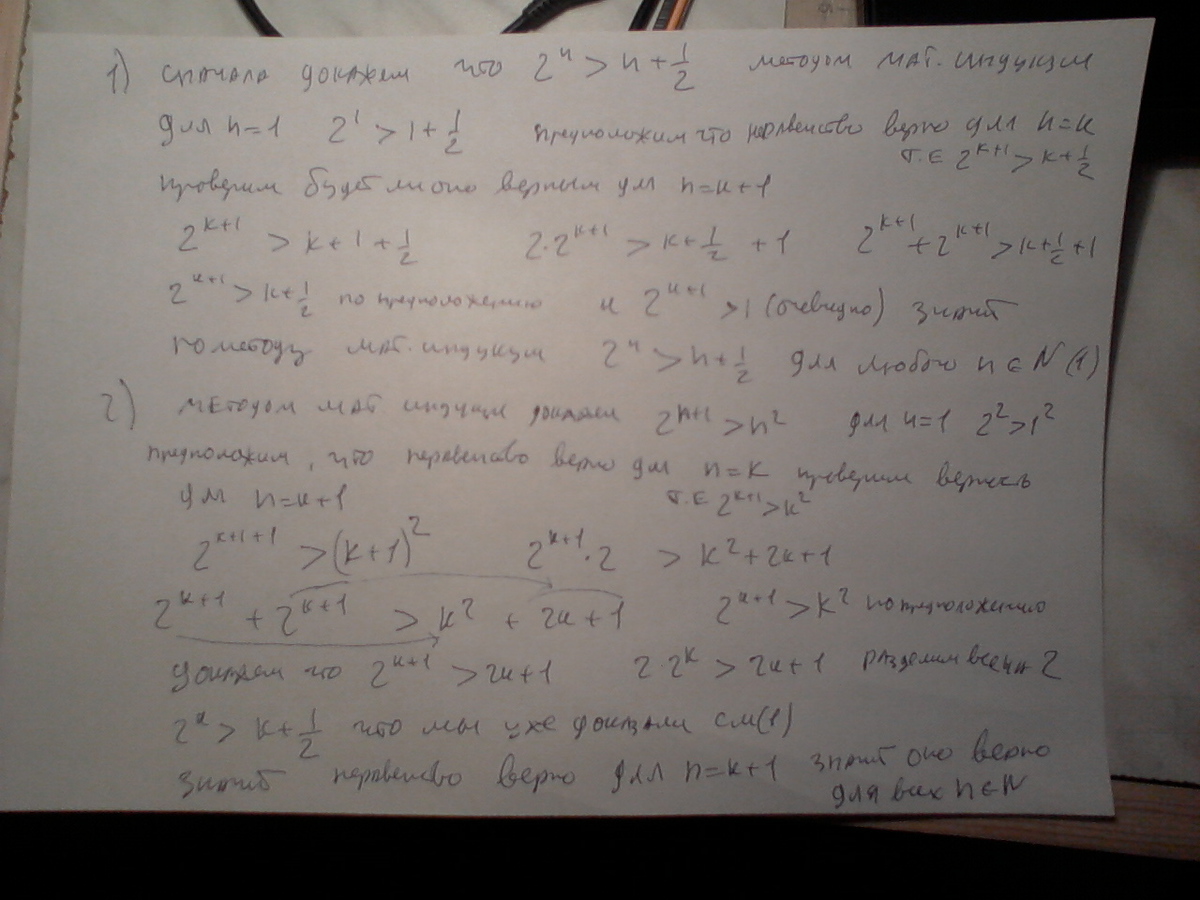 1) сначала докажем что 2ⁿ > n + 1/2 методом мат. индукции
для n=1 2¹ > 1 + 1/2 предположим что неравенство верно для n=k
т.е 2ᵏ⁺¹ > k + 1/2
проверим будет ли оно верным для n=k+1
2ᵏ⁺¹ > k+1+1/2 2·2ᵏ⁺¹ > k+1/2 +1 2ᵏ⁺¹+2ᵏ⁺¹ > k+1/2+1
2ᵏ⁺¹ > k+1/2 по предположению и 2ᵏ⁺¹ >1 (очевидно) значит
по методу мат. индукции 2ⁿ > n+1/2 для любого n ∈ N (1)
2) методом мат индукции докажем 2ⁿ⁺¹ > n² для n=1 2² > 1²
предположим, что неравенство верно для n=k проверим верность
для n=k+1 т.е 2ᵏ⁺¹ > k²
2ᵏ⁺¹⁺¹ > (k+1)² 2ᵏ⁺¹·2 > k²+2k+1
2ᵏ⁺¹ + 2ᵏ⁺¹ > k² + 2k+1 2ᵏ⁺¹ > k² по предположению
докажем что 2ᵏ⁺¹ > 2k+1 2·2ᵏ > 2k+1 разделим все на 2
2ᵏ > k+1/2 что мы уже доказали см(1)
значит неравенство верно для n=k+1 значит оно верно
для всех n ∈ N